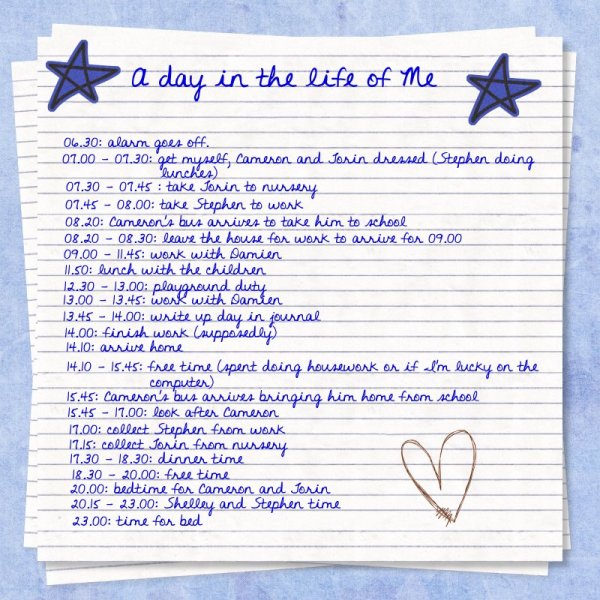 A day in the life of Me
06.30: alarm goes off.
07.00 - 07.30: get myself, Cameron and Torin dressed (Stephen doing
lunches)
07.30 - 07.45 : take Torin to nursery
07.45 - 08.00: take Stephen to work
08.20: Cameron's bus arrives to take him to school
08.20 - 08.30: leave the house for work to arrive for 09.00
09.00 - 11.45: work with Damien
11.50: lunch with the children
12.30 - 13.00: playground duty
13.00 - 13.45: work with Damien
13.45 - 14.00: write up day in journal
14.00: finish work (supposedly)
14.10: arrive home
14.10 - 15.45: free time (spent doing housework or if I'm lucky on the
computer)
15.45: Cameron's bus arrives bringing him home from school
15.45 - 17.00: look after Cameron
17.00: collect Stephen from work
17.15: collect Torin from nursery
17.30 - 18.30: dinner time
18.30 - 20.00: free time
20.00: bedtime for Cameron and Torin
20.15 - 23.00: Shelley and Stephen time
23.00: time for bed